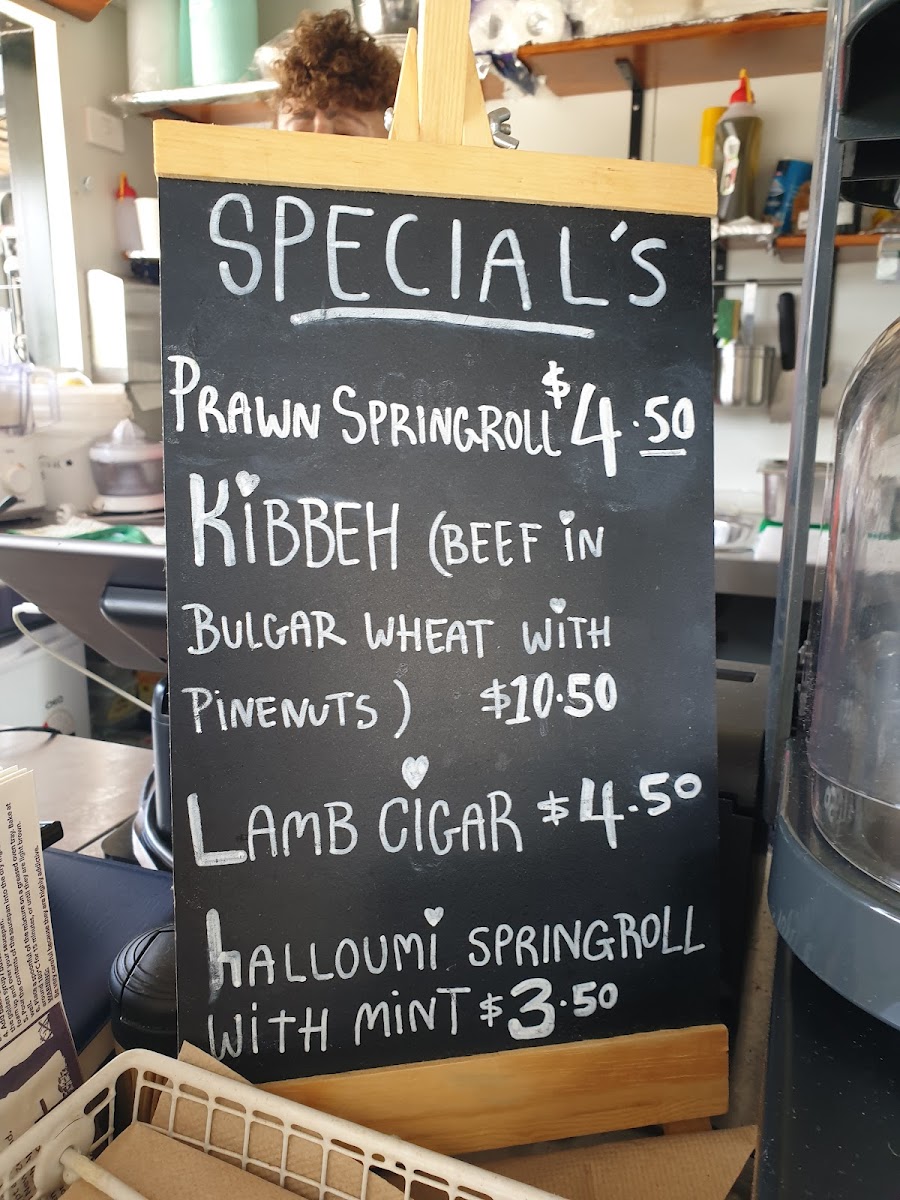 SPECIAL'S
PRAWN SPRINGROLL $4.50
KiBBEH (BEEF iN
BULGAR WHEAT WiTH
PiNENUTS) $10.50
LAMB CiGAR $4.50
hALLOUMi SPRINGROLL
WiTH MiNT $3.50